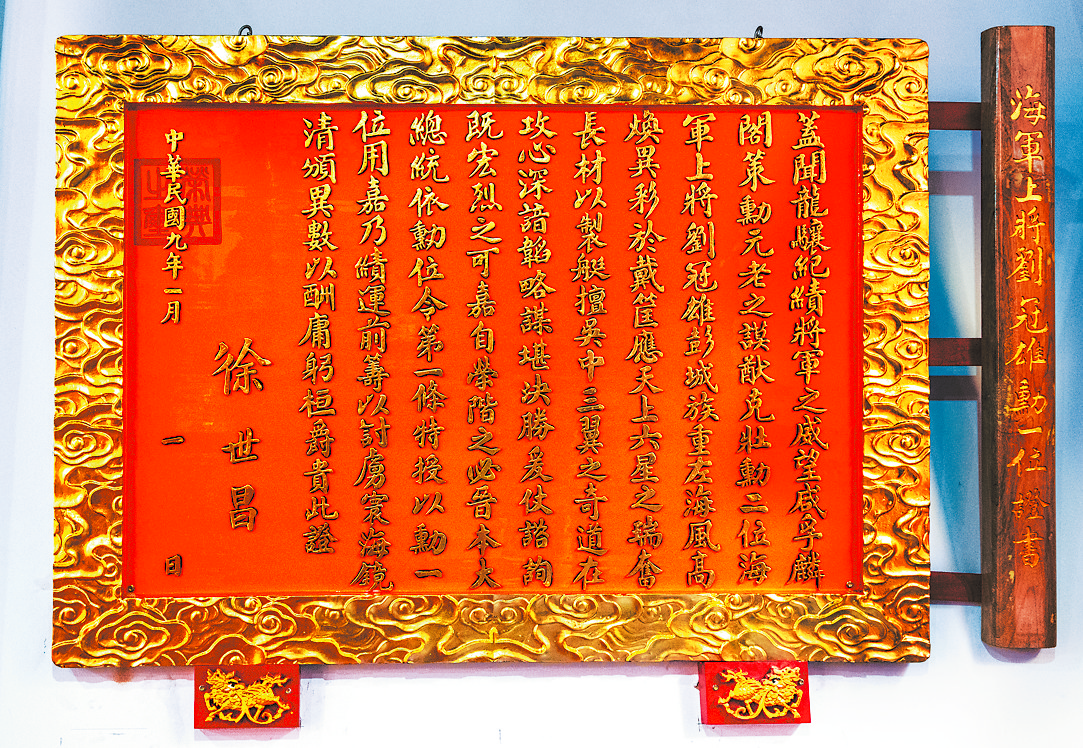 海軍上將劉冠雄勳一位證書
蓋聞龍驤紀績將軍之威望咸孚麟
閣策勳元老之謨猷克壯勳二位海
軍上將劉冠雄彭城族重左海風高
煥異彩於戴筐應天上六星之瑞奮
長材以製艇擅吳中三翼之奇道在
攻心深諳韜略謀堪決勝爰仗諮詢
既宏烈之可嘉自榮階之必晉本大
總統依勳位令第一條特授以勳一
位用嘉乃績運前籌以討虜寰海鏡
清頒異數以酬庸躬桓爵貴此證
徐世昌
中華民國九年一月一日
榮典之璽